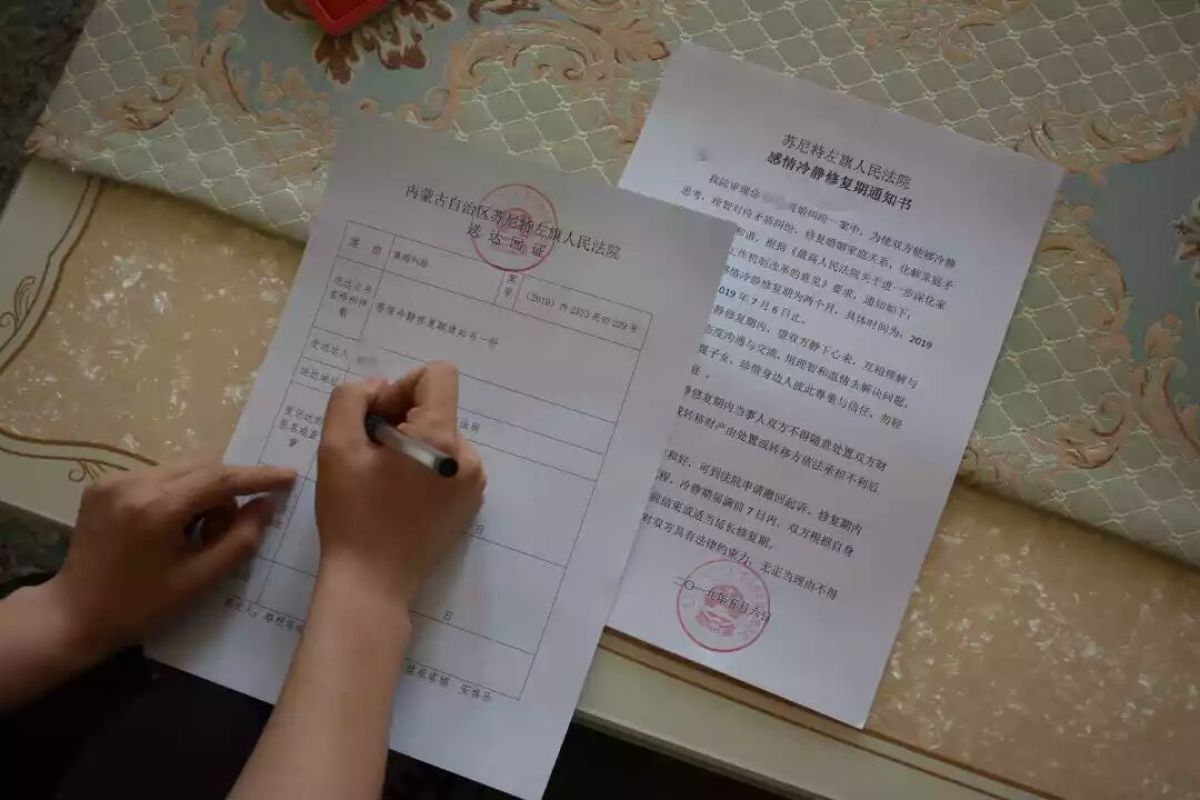 内蒙古自治区苏尼特左旗人民法院
送达回证
案由
离婚纠纷
案号
（2019）内2523民初229号
送达文书名称和件数
感情冷静修复期通知书一份
受送达人
送达地址
法院
日
日
苏尼特左旗人民法院
感情冷静修复期通知书
我院审理你 离婚纠纷一案中，为使双方能够冷静
思考，理智对待矛盾纠纷，修复婚姻家庭关系，化解家庭矛
和谐，根据《最高人民法院关于进一步深化家
工作机制改革的意见》要求，通知如下：
感情冷静修复期为两个月，具体时间为：2019
019年7月6日止。
静修复期内，望双方静下心来，互相理解与
态度沟通与交流，用理智和温情去解决问题，
顾子女，珍惜身边人彼此尊重与信任，勿轻
修复期内当事人双方不得随意处置双方财
或转移财产由处置或转移方依法承担不利后
和好，可到法院申请撤回起诉。修复期内
程，冷静期届满前7日内，双方根据自身
前结束或适当延长修复期。
对双方具有法律约束力，无正当理由不得
二〇一五年五月六日